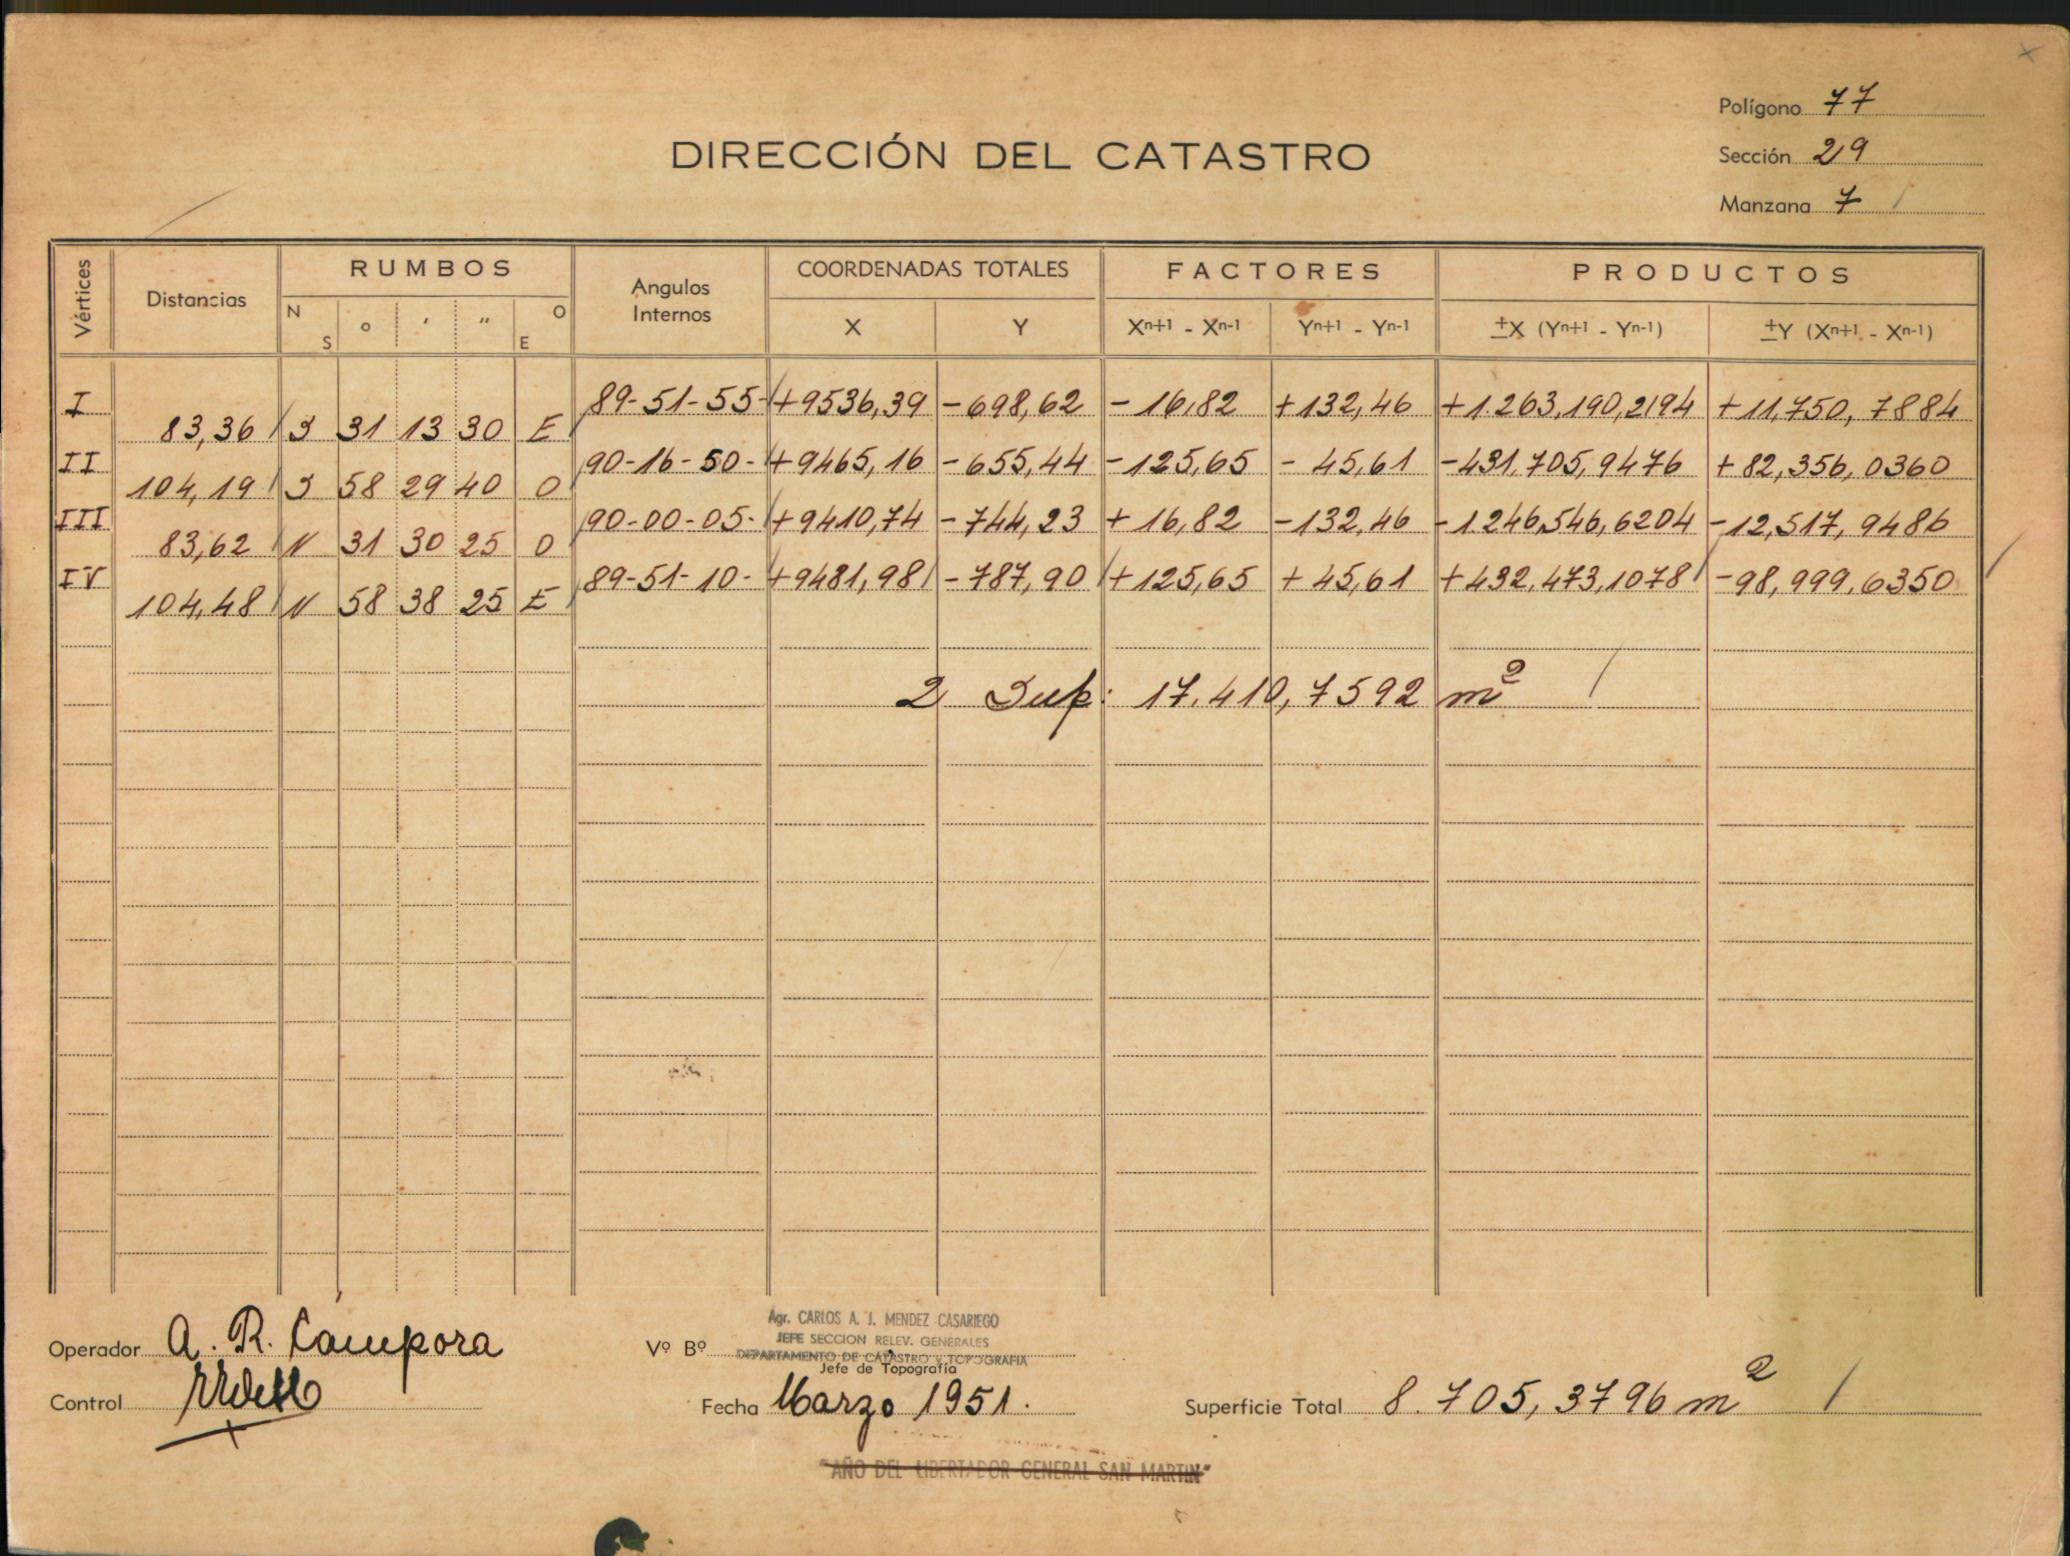 Polígono 77
DIRECCIÓN DEL CATASTRO
Sección 29
Manzana 7
Vértices Distancias RUMBOS N S ° ' " E O Angulos Internos COORDENADAS TOTALES X Y FACTORES Xn+1 - Xn-1 Yn+1 - Yn-1 PRODUCTOS ±X (Yn+1 - Yn-1) ±Y (Xn+1 - Xn-1)
I 89-51-55- +9536,39 -698,62 -16,82 +132,46 +1.263,190,2194 +11,750,7884
83,36 S 31 13 30 E
II 90-16-50- +9465,16 -655,44 -125,65 -45,61 -431.705,9476 +82,356,0360
104,19 S 58 29 40 O
III 90-00-05- +9410,74 -744,23 +16,82 -132,46 -1.246,546,6204 -12,517,9486
83,62 N 31 30 25 O
IV 89-51-10- +9481,98 -787,90 +125,65 +45,61 +432,473,1078 -98,999,6350
104,48 N 58 38 25 E
2 Sup: 17.410,7592 m²
Agr. CARLOS A. J. MENDEZ CASARIEGO
JEFE SECCION RELEV. GENERALES
Operador A. R. Cámpora Vº Bº DEPARTAMENTO DE CATASTRO Y TOPOGRAFIA
Jefe de Topografía
Control Fecha Marzo 1951. Superficie Total 8.705,3796 m²
"AÑO DEL LIBERTADOR GENERAL SAN MARTIN"